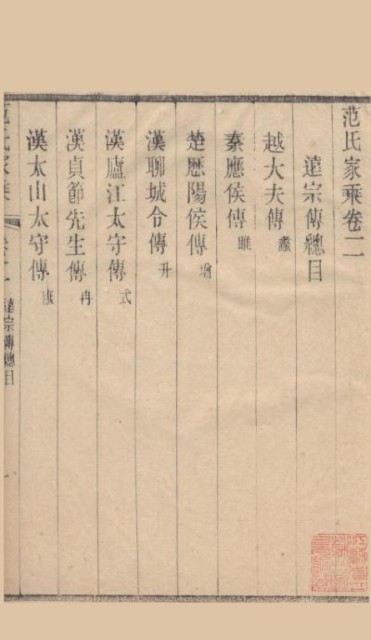 范氏家乘卷二
遠宗傳總目
越大夫傳 蠡
秦應侯傳 雎
楚歷陽侯傳 增
漢聊城令傳 升
漢廬江太守傳 式
漢貞節先生傳 冉
漢太山太守傳 康
范氏家乘
卷二
遠宗傳總目